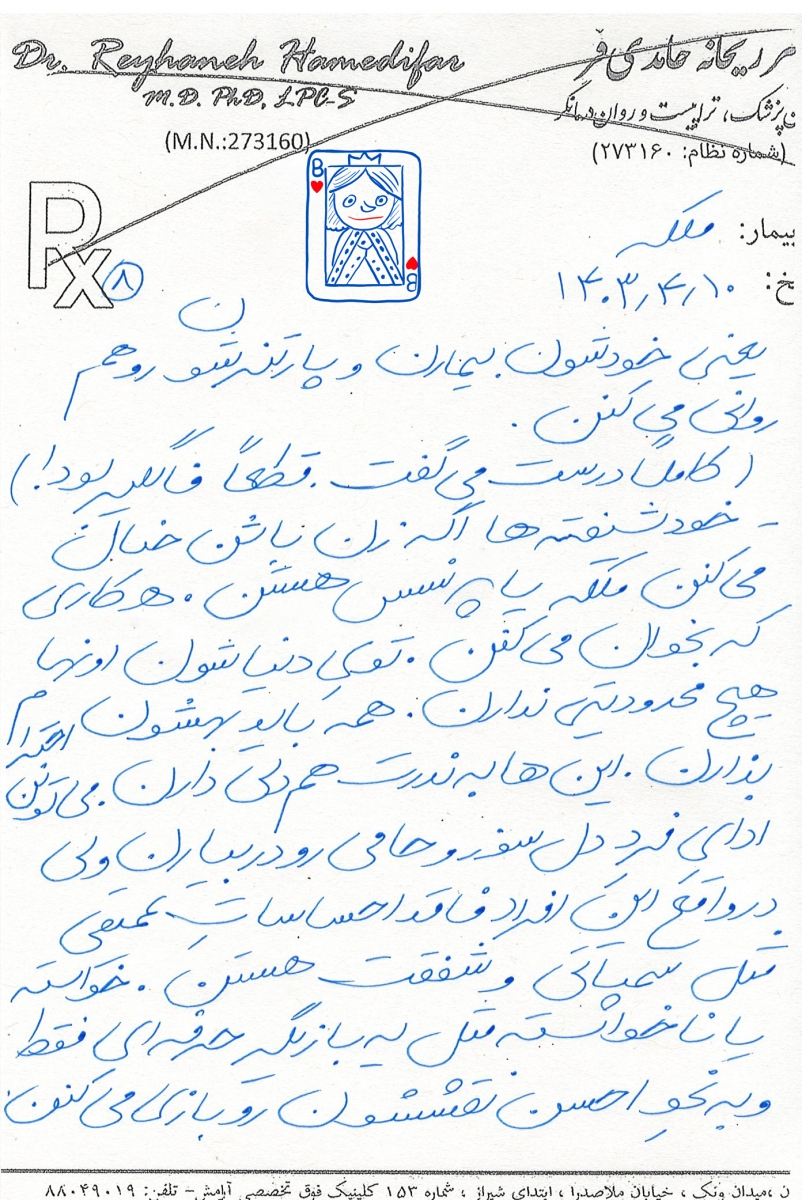 Dr. Reyhaneh Hamedifar
M.D. PhD, LPC-S
(M.N.:273160)
ر ریحانه حامدی فر
ن پزشک، تراپیست و روان درمانگر
(شماره نظام: ۲۷۳۱۶۰)
Rx
۸
B
B
بیمار: ملکه
خ: ۱۴۰۳٫۴٫۱۰
یعنی خودشون بیمارن و پارتنرشون رو هم
روانی می کنن.
(کاملاً درست می گفت. قطعاً فاکیر بود!)
- خودشیفته ها اگه زن باشن خیال
می کنن ملکه یا پرنسس هستن. هر کاری
که بخوان می کنن. توی دنیاشون اونها
هیچ محدودیتی ندارن. همه باید بهشون احترام
بذارن. این ها به ندرت هم دلی دارن. می تونن
ادای فرد دل سوز و حامی رو در بیارن ولی
در واقع این افراد فاقد احساساتِ عمیقی
مثل سمپاتی و شفقت هستن. خواسته
یا ناخواسته مثل یه بازیگر حرفه ای فقط
و به نحو احسن نقششون رو بازی می کنن
ن ،میدان ونک ، خیابان ملاصدرا ، ابتدای شیراز ، شماره ۱۵۳ کلینیک فوق تخصصی آرامش- تلفن: ۸۸۰۴۹۰۱۹